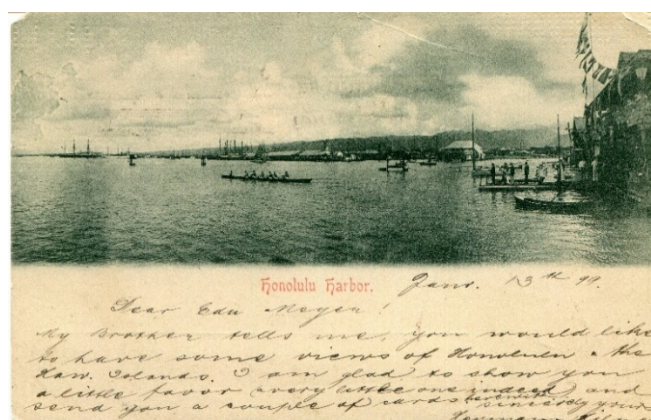 Honolulu Harbor.
Janr. 13th 99.
Dear Edu Meyer!
My Brother tells me, you would like
to have some views of Honolulu & the
Haw. Islands. I am glad to show you
a little favor every little one indeed, and
send you a couple of cards herewith sincerely your